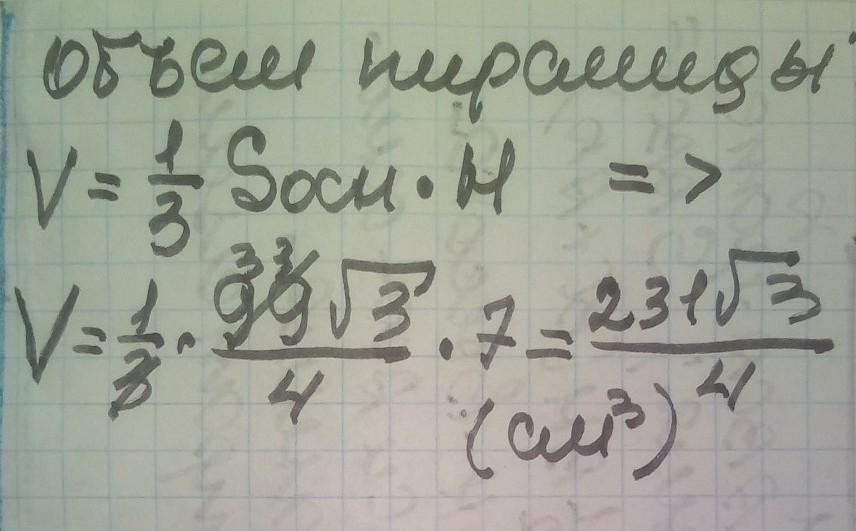 Объем пирамиды
V = 1/3 Sосн · H =>
V = 1/3 · 99√3/4 · 7 = 231√3/4
33
(см³)